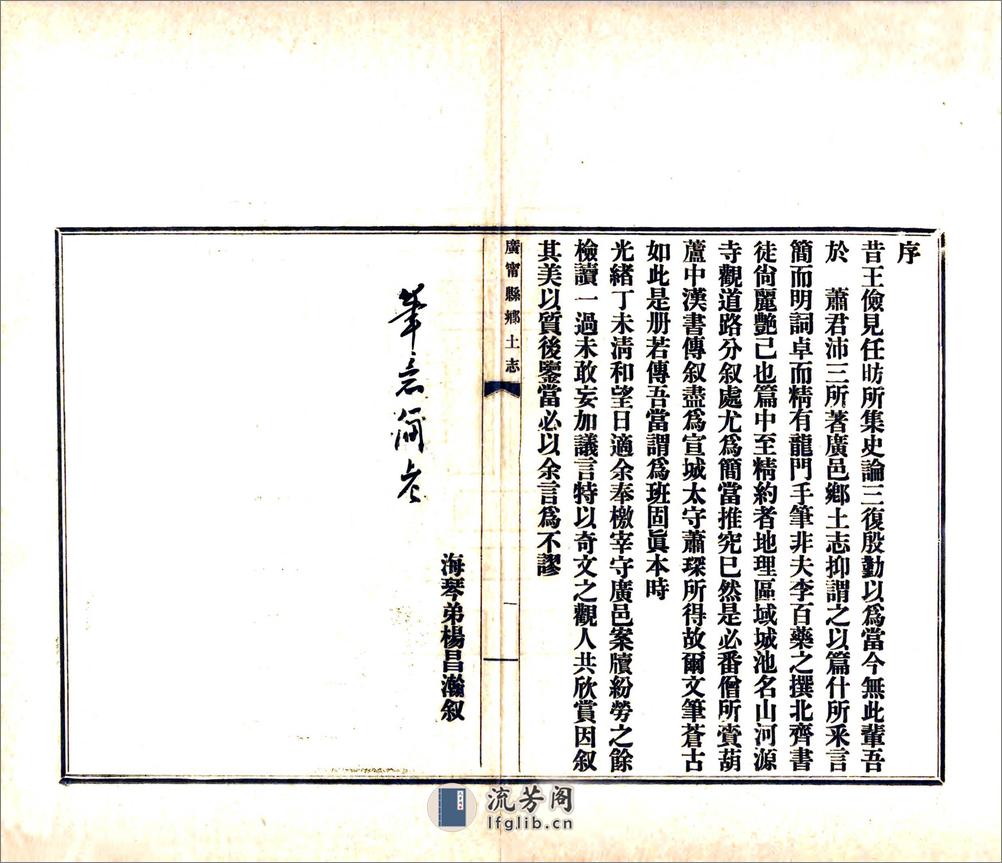 序
昔王儉見任昉所集史論三復殷勤以爲當今無此輩吾
於　蕭君沛三所著廣邑鄉土志抑謂之以篇什所釆言
簡而明詞卓而精有龍門手筆非夫李百藥之撰北齊書
徒尙麗艷己也篇中至精約者地理區域城池名山河源
寺觀道路分叙處尤爲簡當推究巳然是必番僧所賫葫
蘆中漢書傳叙盡爲宣城太守蕭琛所得故爾文筆蒼古
如此是册若傳吾當謂爲班固眞本時
光緒丁未淸和望日適余奉檄宰守廣邑案牘紛勞之餘
檢讀一過未敢妄加議言特以奇文之觀人共欣賞因叙
其美以質後鑒當必以余言爲不謬
廣甯縣鄉土志
一
海琴弟楊昌瀚叙
筆意簡老
流芳阁
lfglib.cn